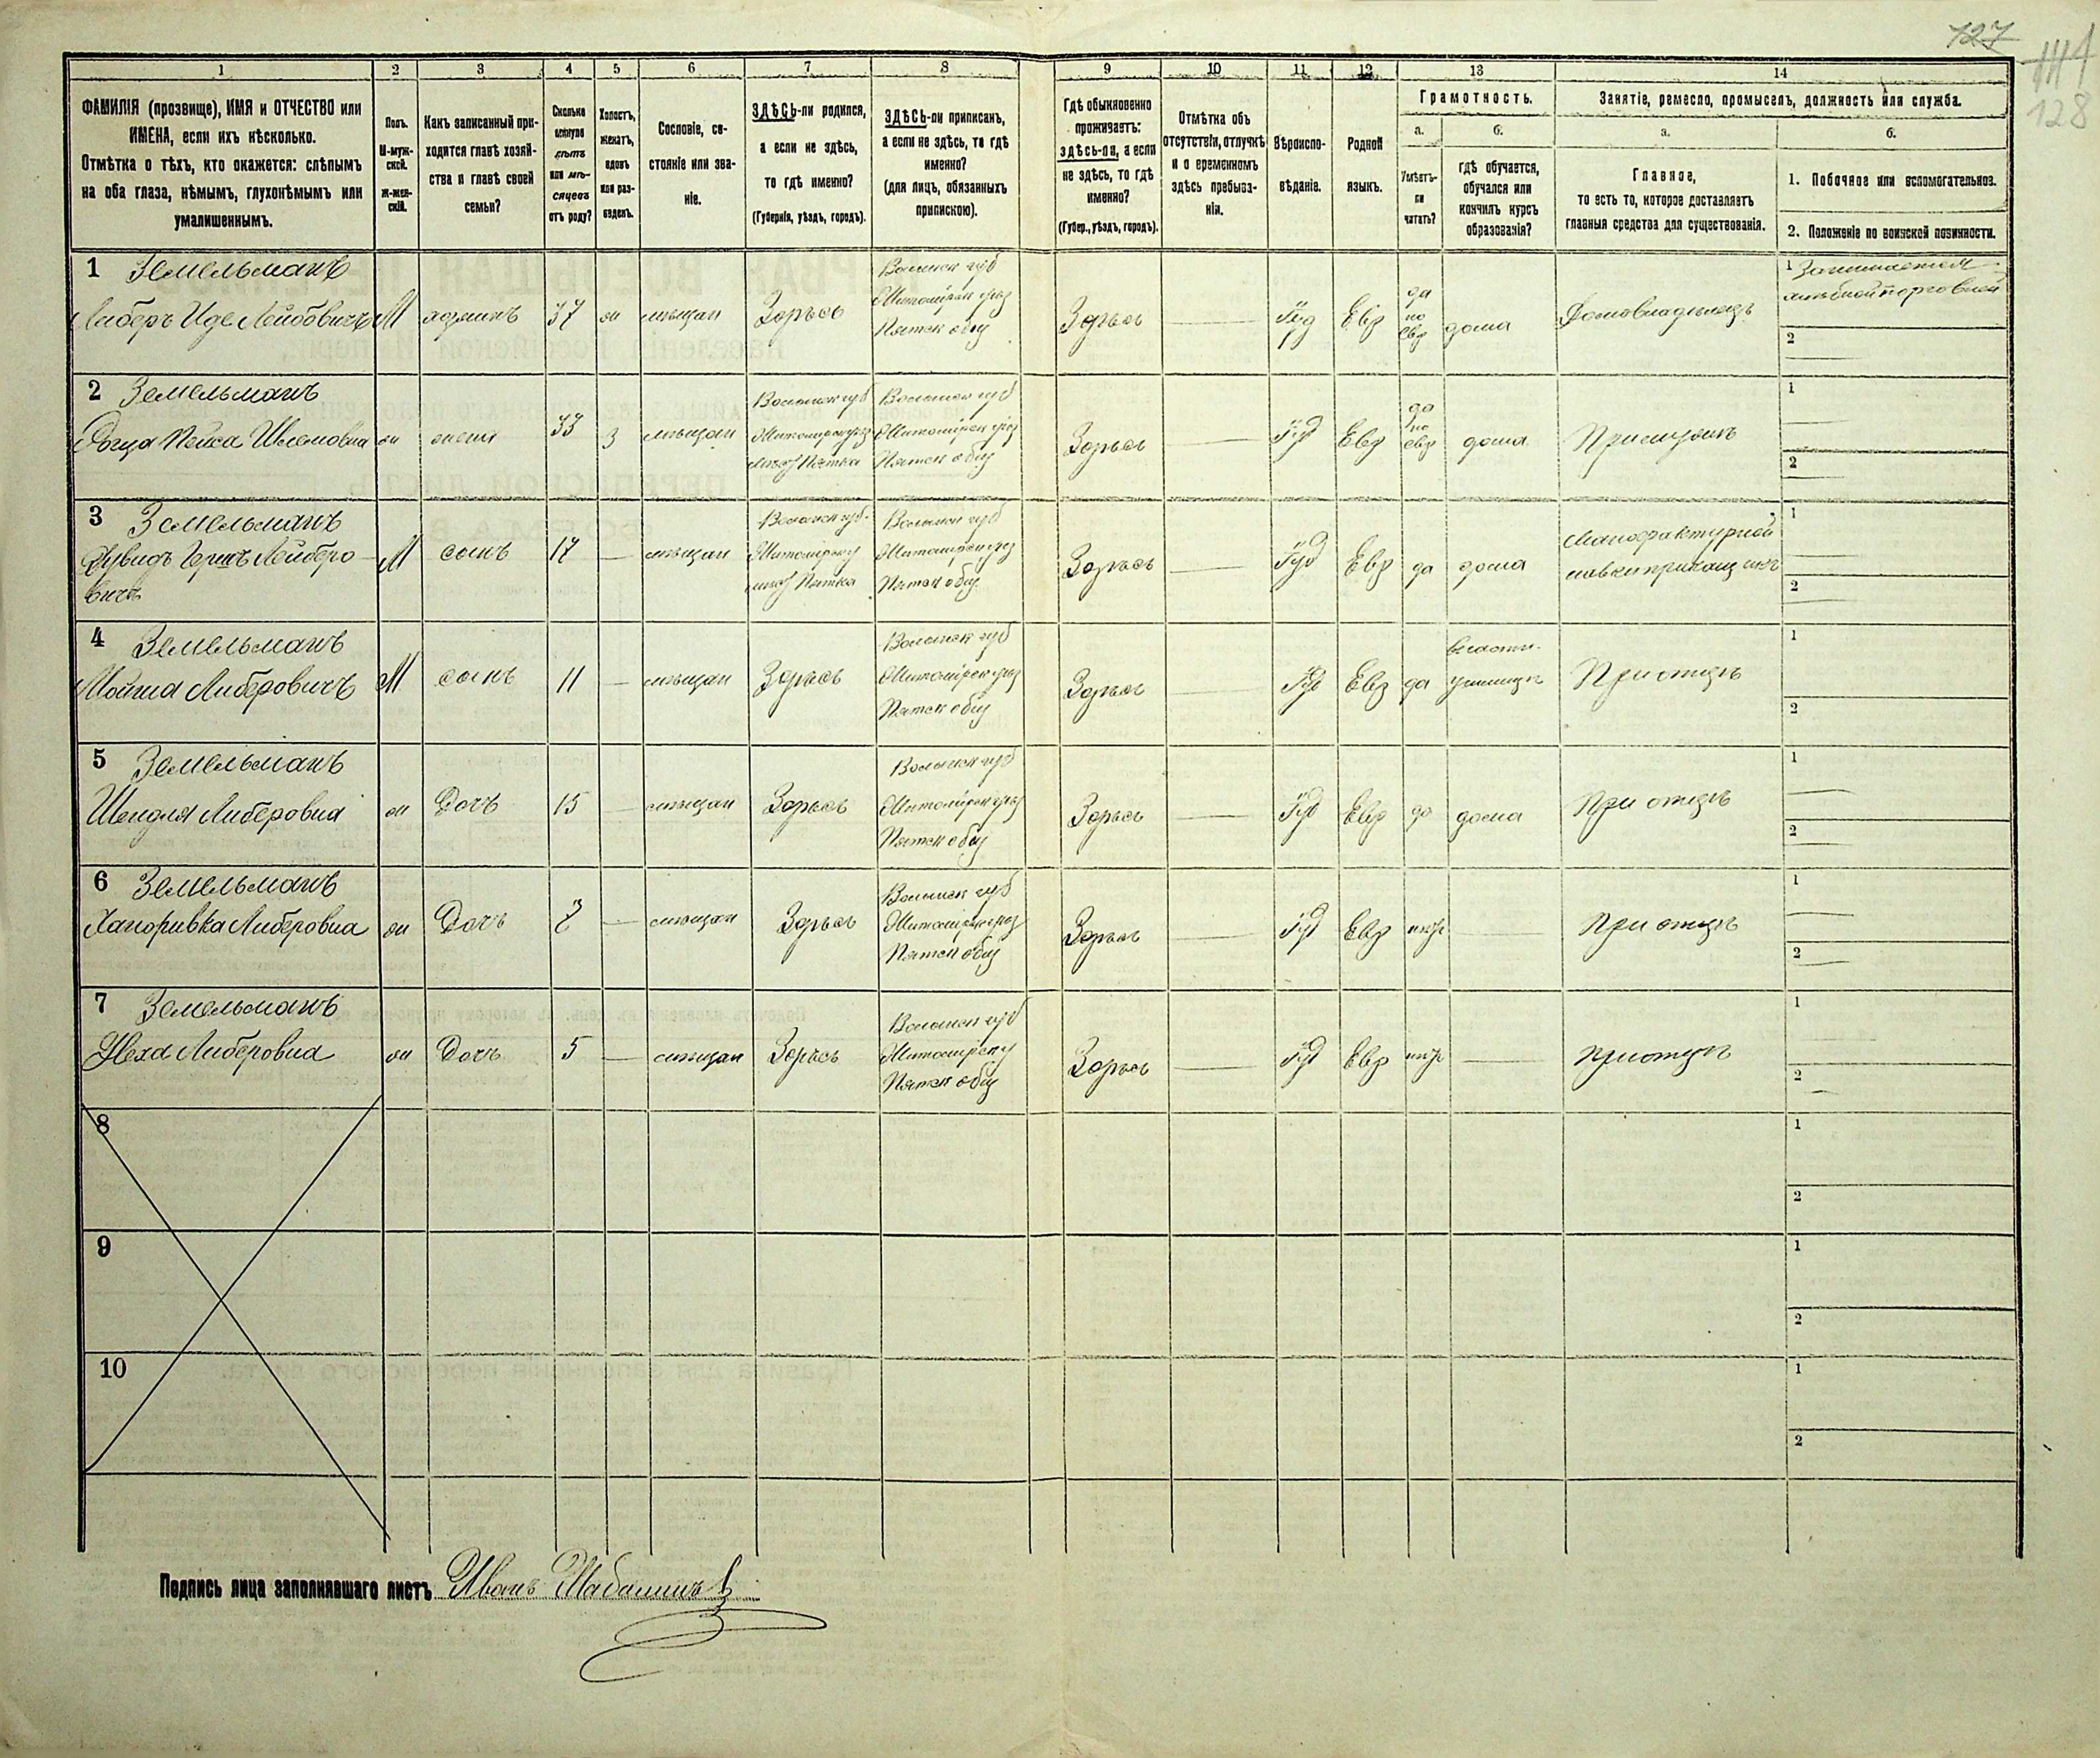 127
128
1 2 3 4 5 6 7 8 9 10 11 12 13 14
ФАМИЛІЯ (прозвище), ИМЯ и ОТЧЕСТВО или
ИМЕНА, если ихъ нѣсколько.
Отмѣтка о тѣхъ, кто окажется: слѣпымъ
на оба глаза, нѣмымъ, глухонѣмымъ или
умалишеннымъ.
Полъ.
М-муж-
ской.
Ж-жен-
скій.
Какъ записанный при-
ходится главѣ хозяй-
ства и главѣ своей
семьи?
Сколько
минуло
лѣтъ
или мѣ-
сяцевъ
отъ роду?
Холостъ,
женатъ,
вдовъ
или раз-
веденъ.
Сословіе, со-
стояніе или зва-
ніе.
ЗДѢСЬ-ли родился,
а если не здѣсь,
то гдѣ именно?
(Губернія, уѣздъ, городъ).
ЗДѢСЬ-ли приписанъ,
а если не здѣсь, то гдѣ
именно?
(для лицъ, обязанныхъ
припискою).
Гдѣ обыкновенно
проживаетъ:
здѣсь-ли, а если
не здѣсь, то гдѣ
именно?
(Губер., уѣздъ, городъ).
Отмѣтка объ
отсутствіи, отлучкѣ
и о временномъ
здѣсь пребыва-
ніи.
Вѣроиспо-
вѣданіе.
Родной
языкъ.
Грамотность.
а.
Умѣетъ-
ли
читать?
б.
гдѣ обучается,
обучался или
кончилъ курсъ
образованія?
Занятіе, ремесло, промыселъ, должность или служба.
а.
Главное,
то есть то, которое доставляетъ
главныя средства для существованія.
б.
1. Побочное или вспомогательное.
2. Положеніе по воинской повинности.
1 Земельманъ
Либеръ Иде Лейбовичъ М хозяинъ 37 ж мѣщан Здѣсь
Волынск губ
Житомірск уѣз
Пятск общ
Здѣсь — Іуд Евр
да
по
Евр
дома Домовладѣлецъ
1 Занимается
хлѣбной торговлей
2
2 Земельманъ
Пейса ж жена 33 з мѣщан
Волынск губ
Житомірск уѣз
мѣст Пятка
Волынск губ
Житомірск уѣз
Пятск общ
Здѣсь — Іуд Евр
да
по
евр
дома При мужѣ
1
2
3 Земельманъ
Дувидъ Герш Лейберо-
вичъ
М сынъ 17 — мѣщан
Волынск губ.
Житомірск у
мѣст Пятка
Волынск губ
Житомірск уѣз
Пятск общ.
Здѣсь — Іуд Евр да дома
Мануфактурной
лавки приказчикъ
1
2
4 Земельманъ
Мойша Либеровичъ М сынъ 11 — мѣщан Здѣсь
Волынск губ
Житомірск уѣз
Пятск общ
Здѣсь — Іуд Евр да
училищѣ
При отцѣ
1
2
5 Земельманъ
Шендля Либеровна ж Дочь 15 — мѣщан Здѣсь
Волынск губ
Житомірск уѣз
Пятск общ
Здѣсь — Іуд Евр да дома При отцѣ
1
2
6 Земельманъ
Либеровна ж Дочь 7 — мѣщан Здѣсь
Волынск губ
Житомірск уѣз
Пятск общ
Здѣсь — Іуд Евр — При отцѣ
1
2
7 Земельманъ
Либеровна ж Дочь 5 — мѣщан Здѣсь
Волынск губ
Житомірск у
Пятск общ
Здѣсь — Іуд Евр — При отцѣ
1
2
8
1
2
9
1
2
10
1
2
Подпись лица заполнявшаго листъ Иванъ